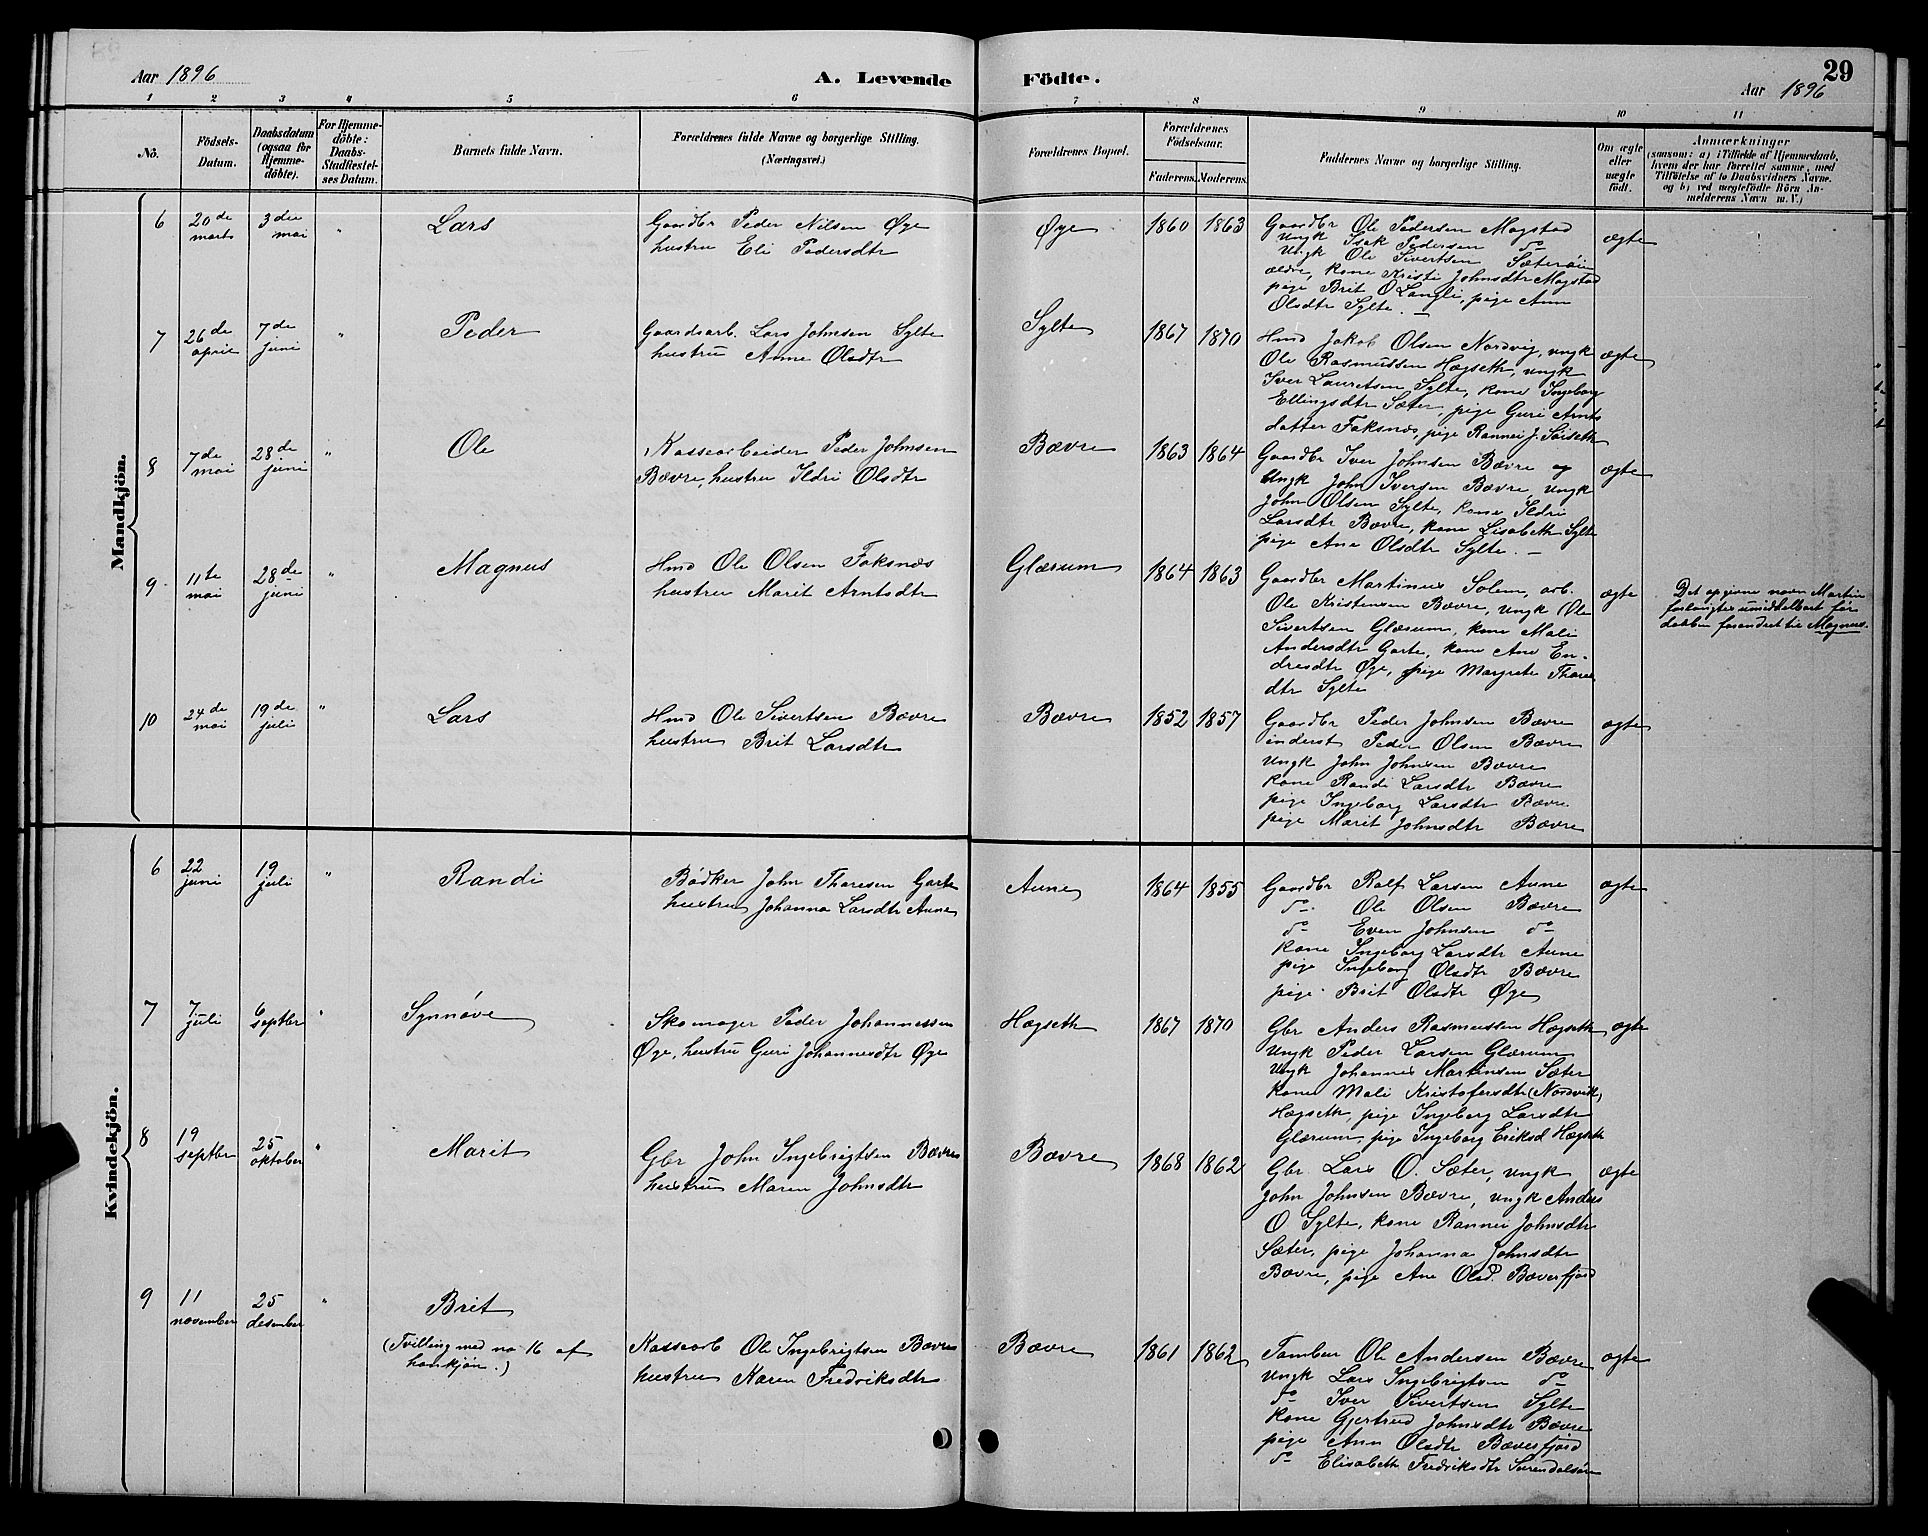 Aar 1896
A. Levende
Födte.
29
Aar 1896
1 2 3 4 5 6 7 8 9 10 11
Nö.
Födsels-
Datum.
Daabsdatum
(ogsaa for
Hjemme-
döbte).
For Hjemme-
döbte:
Daabs-
Stadfæstel-
ses Datum.
Barnets fulde Navn.
Forældrenes fulde Navne og borgerlige Stilling.
(Næringsvei.)
Forældrenes Bopæl.
Forældrenes
Födselsaar.
Faderens.
Moderens.
Faddernes Navne og borgerlige Stilling.
Om ægte
eller
uægte
födt.
Anmærkninger
(saasom: a) i Tilfælde af Hjemmedaab,
hvem der har forrettet samme, med
Tilföielse af to Daabsvidners Navne.
og b) ved uægtefödte Börn An-
melderens Navn m. V.)
Mandkjön.
6
20de
marts
3die
mai
"
Lars
Gaardbr Peder Nilsen Øye
hustru Eli Pedersdtr
Øye
1860
1863
Gaardbr Ole Pedersen Mogstad
Ungk Isak Pedersen do
Ungk Ole Sivertsen Sæterøien
ældre, kone Kristi Johnsdtr Mogstad
pige Brit O Langli, pige Ane
Olsdtr Sylte. —
ægte
7
26de
april
7de
juni
"
Peder
Gaardsarb. Lars Johnsen Sylte
hustru Anne Olsdtr
Sylte
1867
1870
Hmd Jakob Olsen Nordvig, ungk
Ole Rasmussen Hægseth, ungk
Iver Lauretsen Sylte, kone Ingeborg
Ellingsdtr Sæter, pige Guri Arnts
datter Foksnes, pige Rannei J. Søiseth
ægte
8
7de
mai
28de
juni
"
Ole
Kassearbeider Peder Johnsen
Bævre, hustru Ildri Olsdtr
Bævre
1863
1864
Gaardbr Iver Johnsen Bævre og
Ungk John Iversen Bævre, ungk
John Olsen Sylte, kone Ildri
Larsdtr Bævre, kone Lisabeth Sylte
pige Ane Olsdtr Sylte. —
ægte
9
11te
mai
28de
juni
"
Magnus
Hmd Ole Olsen Foksnes
hustru Marit Arntsdtr
Glærum
1864
1863
Gaardbr Martinus Solem, arb.
Ole Kristensen Bævre, ungk Ole
Sivertsen Glærum, kone Mali
Andersdtr Garte, kone Ane En-
dresdtr Øye, pige Margrete Thores
dtr Sylte
ægte
Det opgivne navn Martin
forlangtes umiddelbart før
daaben forandret til Magnus.
10
24de
mai
19de
juli
"
Lars
Hmd Ole Sivertsen Bævre
hustru Brit Larsdtr
Bævre
1852
1857
Gaardbr Peder Johnsen Bævre
inderst Peder Olsen Bævre
Ungk John Johnsen Bævre
kone Randi Larsdtr Bævre
pige Ingeborg Larsdtr Bævre
pige Marit Johnsdtr Bævre
ægte
Kvindekjön.
6
22
juni
19
juli
"
Randi
Bødker John Thoresen Garte
hustru Johanna Larsdtr Aune
Aune
1864
1855
Gaardbr Rolf Larsen Aune
do Ole Olsen Bævre
do Even Johnsen do
kone Ingeborg Larsdtr Aune
pige Ingeborg Olsdtr Bævre
pige Brit Olsdtr Øye
ægte
7
7
juli
6
septbr
"
Synnøve
Skomager Peder Johannessen
Øye, hustru Guri Johannesdtr Øye
Hægseth
1867
1870
Gbr Anders Rasmussen Hægseth
Ungk Peder Larsen Glærum
Ungk Johannes Martinsen Sæter
kone Mali Kristofersdtr (Nordvik)
Hægseth, pige Ingeborg Larsdtr
Glærum, pige Ingeborg Eriksd Hægseth
ægte
8
19
septbr
25
oktober
"
Marit
Gbr John Ingebrigtsen Bævre
hustru Maren Johnsdtr
Bævre
1868
1862
Gbr Lars O. Sæter, ungk
John Johnsen Bævre, ungk Anders
O Sylte, kone Rannei Johnsdtr
Sæter, pige Johanna Johnsdtr
Bævre, pige Ane Olsd. Bæverfjord
ægte
9
11
november
25
desember
"
Brit
(Tvilling med no 16 af
hankjøn.)
Kassearb Ole Ingebrigtsen Bævre
hustru Karen Fredriksdtr
Bævre
1861
1862
Tambur Ole Andersen Bævre
Ungk Lars Ingebrigtsen do
do Iver Sivertsen Sylte
kone Gjertrud Johnsdtr Bævre
pige Ane Olsdtr Bæverfjord
do Elisabeth Fredriksdtr Surendalsøren
ægte